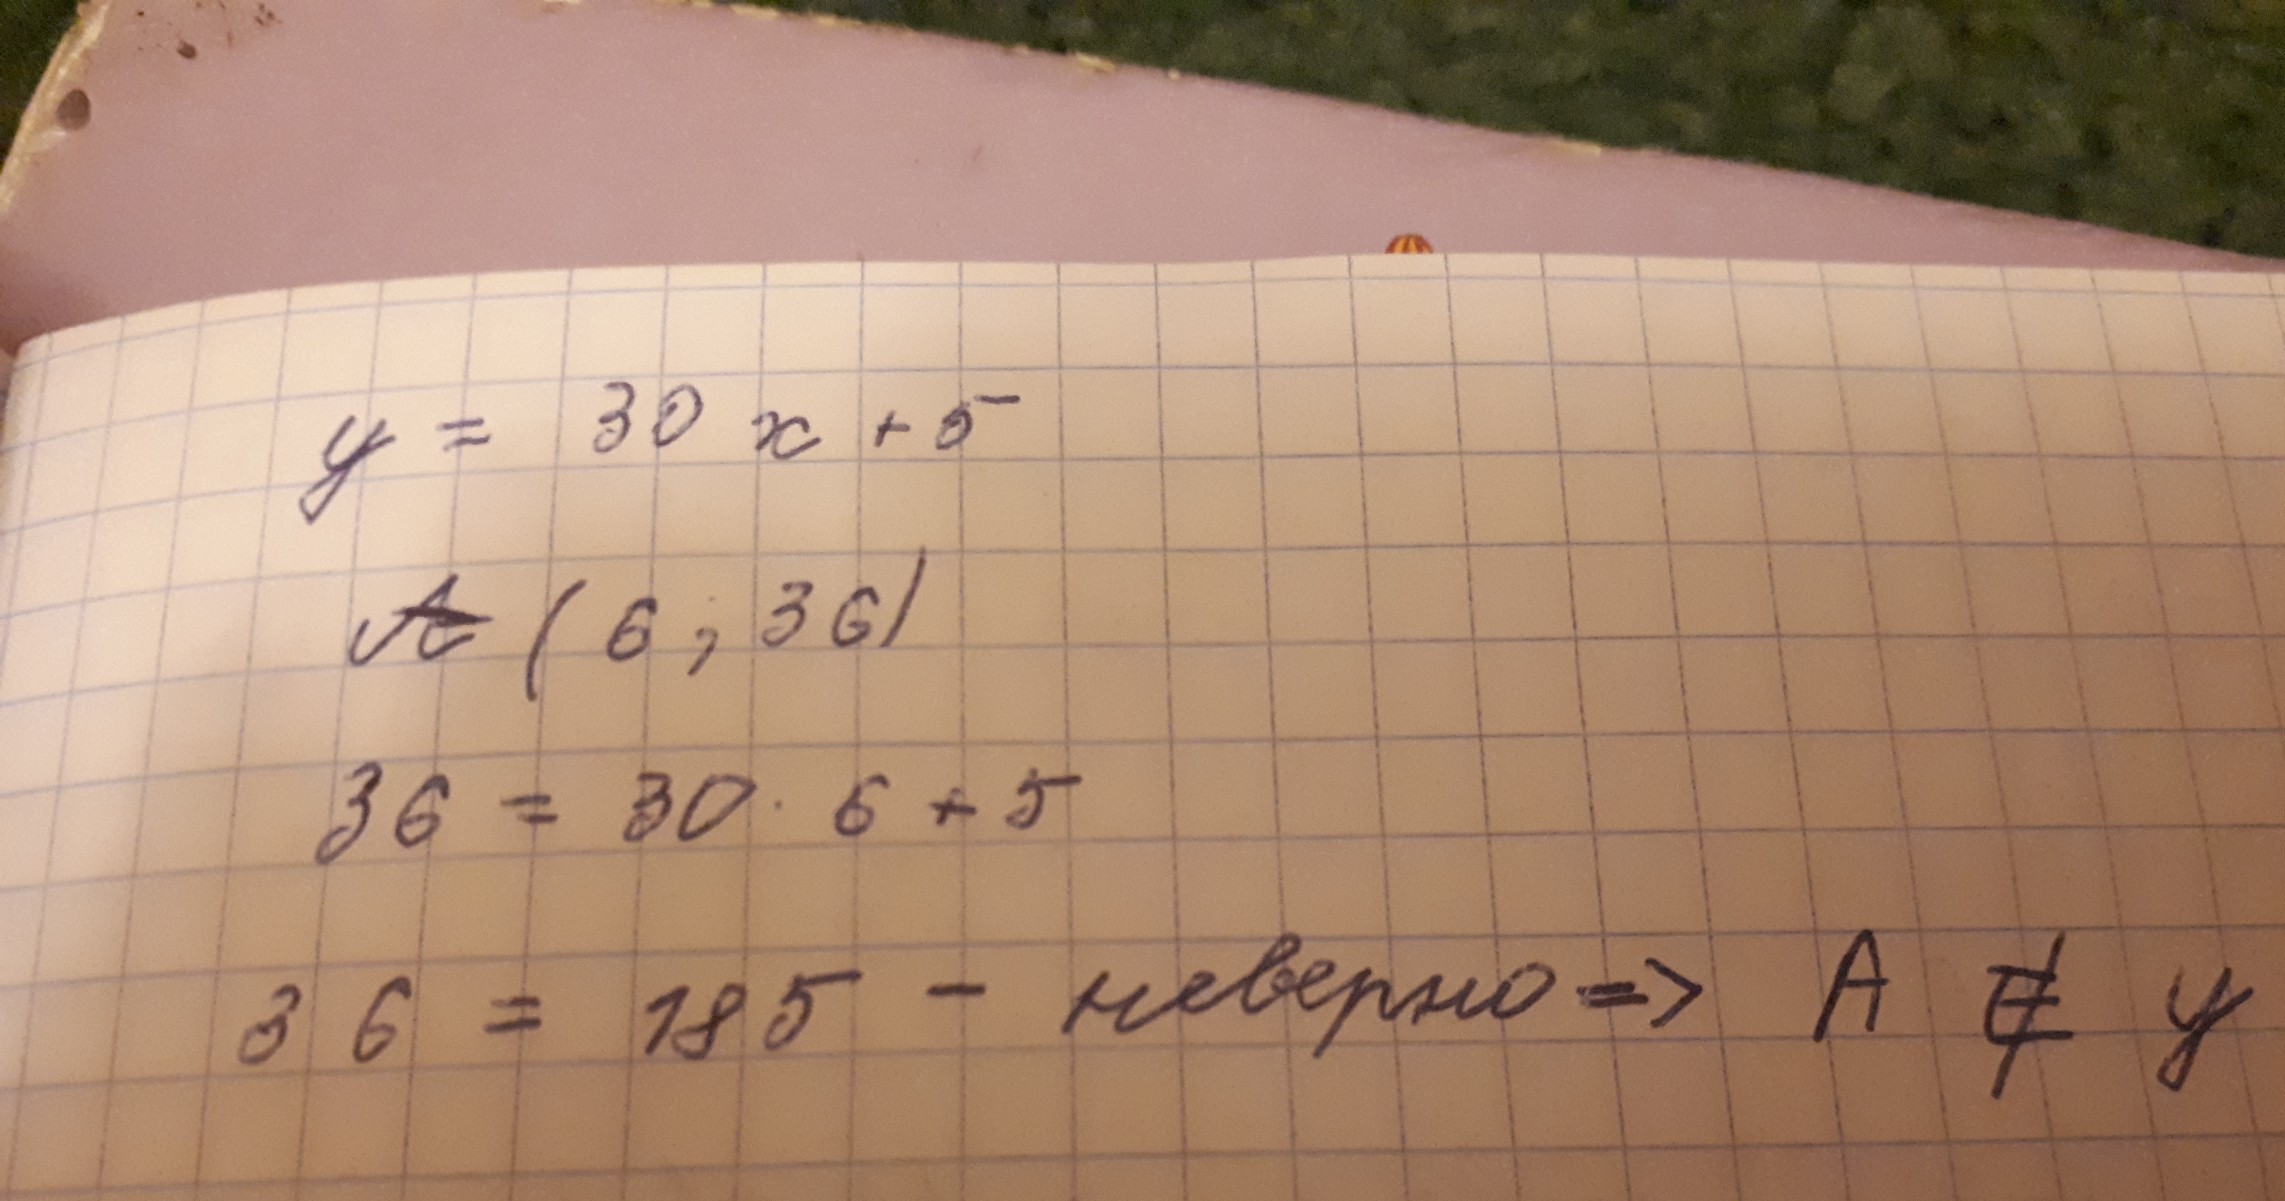 y = 30x + 5
A (6; 36)
36 = 30 · 6 + 5
36 = 185 - неверно => A ∉ y